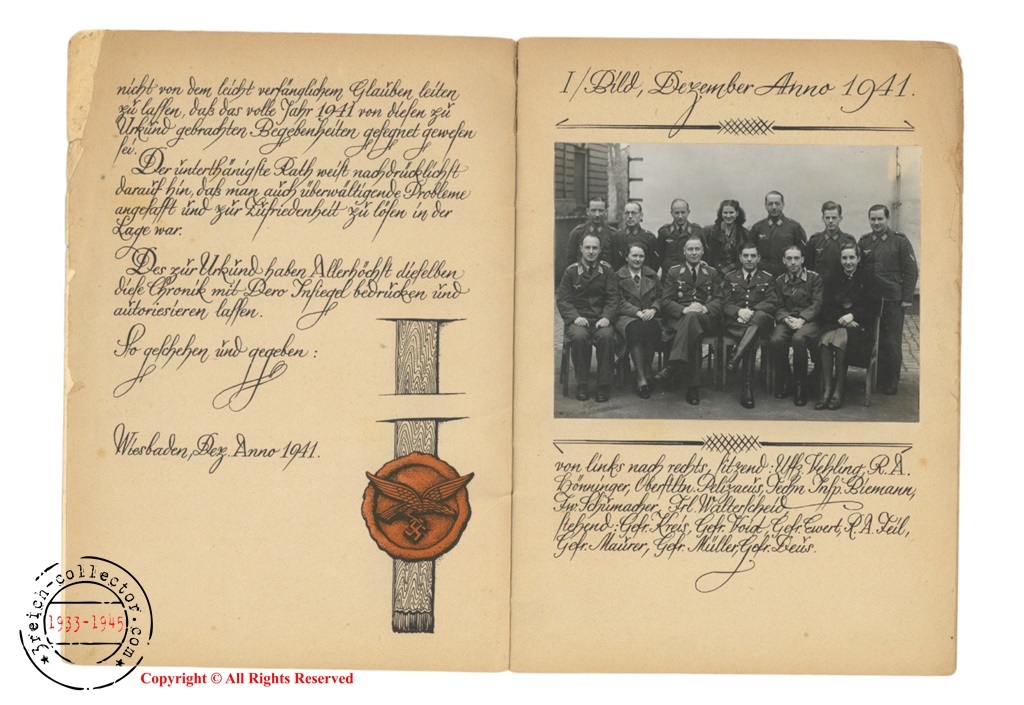 nicht von dem leicht verfänglichem Glauben leiten
zu lassen, daß das volle Jahr 1941 von diesen zu
Urkünd gebrachten Begebenheiten gesegnet gewesen
sei.
Der unterthänigste Rath weist nachdrücklichst
darauf hin, daß man auch überwältigende Probleme
angefasst und zur Zufriedenheit zu lösen in der
Lage war.
Des zur Urkünd haben Allerhöchst dieselben
diese Chronik mit Dero Insiegel bedrücken und
autoriesieren lassen.
So geschehen und gegeben:
Wiesbaden, Dez. Anno 1941.
I/Bild, Dezember Anno 1941.
von links nach rechts, sitzend: Uffz. Vehling, R.A.
Hönninger, Oberstltn. Pelizaeus, Techn. Insp. Biemann,
Fw. Schumacher, Frl. Walterscheid
stehend: Gefr. Kreis, Gefr. Voigt, Gefr. Ewert, R.A. Feil,
Gefr. Maurer, Gefr. Müller, Gefr. Deus.
3reich-collector.com
1933-1945
Copyright © All Rights Reserved